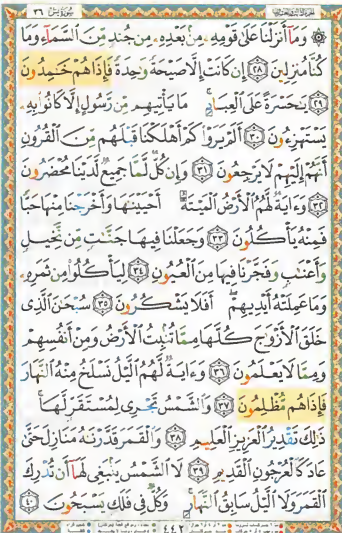 سُورَةُ يسٓ ٣٦
۞ وَمَآ أَنزَلْنَا عَلَىٰ قَوْمِهِۦ مِنۢ بَعْدِهِۦ مِن جُندٍ مِّنَ ٱلسَّمَآءِ وَمَا
كُنَّا مُنزِلِينَ ٢٨ إِن كَانَتْ إِلَّا صَيْحَةً وَٰحِدَةً فَإِذَا هُمْ خَٰمِدُونَ
٢٩ يَٰحَسْرَةً عَلَى ٱلْعِبَادِ ۚ مَا يَأْتِيهِم مِّن رَّسُولٍ إِلَّا كَانُوا۟ بِهِۦ
يَسْتَهْزِءُونَ ٣٠ أَلَمْ يَرَوْا۟ كَمْ أَهْلَكْنَا قَبْلَهُم مِّنَ ٱلْقُرُونِ
أَنَّهُمْ إِلَيْهِمْ لَا يَرْجِعُونَ ٣١ وَإِن كُلٌّ لَّمَّا جَمِيعٌ لَّدَيْنَا مُحْضَرُونَ
٣٢ وَءَايَةٌ لَّهُمُ ٱلْأَرْضُ ٱلْمَيْتَةُ أَحْيَيْنَٰهَا وَأَخْرَجْنَا مِنْهَا حَبًّا
فَمِنْهُ يَأْكُلُونَ ٣٣ وَجَعَلْنَا فِيهَا جَنَّٰتٍ مِّن نَّخِيلٍ
وَأَعْنَٰبٍ وَفَجَّرْنَا فِيهَا مِنَ ٱلْعُيُونِ ٣٤ لِيَأْكُلُوا۟ مِن ثَمَرِهِۦ
وَمَا عَمِلَتْهُ أَيْدِيهِمْ ۖ أَفَلَا يَشْكُرُونَ ٣٥ سُبْحَٰنَ ٱلَّذِى
خَلَقَ ٱلْأَزْوَٰجَ كُلَّهَا مِمَّا تُنۢبِتُ ٱلْأَرْضُ وَمِنْ أَنفُسِهِمْ
وَمِمَّا لَا يَعْلَمُونَ ٣٦ وَءَايَةٌ لَّهُمُ ٱلَّيْلُ نَسْلَخُ مِنْهُ ٱلنَّهَارَ
فَإِذَا هُم مُّظْلِمُونَ ٣٧ وَٱلشَّمْسُ تَجْرِى لِمُسْتَقَرٍّ لَّهَا ۚ
ذَٰلِكَ تَقْدِيرُ ٱلْعَزِيزِ ٱلْعَلِيمِ ٣٨ وَٱلْقَمَرَ قَدَّرْنَٰهُ مَنَازِلَ حَتَّىٰ
عَادَ كَٱلْعُرْجُونِ ٱلْقَدِيمِ ٣٩ لَا ٱلشَّمْسُ يَنۢبَغِى لَهَآ أَن تُدْرِكَ
ٱلْقَمَرَ وَلَا ٱلَّيْلُ سَابِقُ ٱلنَّهَارِ ۚ وَكُلٌّ فِى فَلَكٍ يَسْبَحُونَ ٤٠
٤٤٢